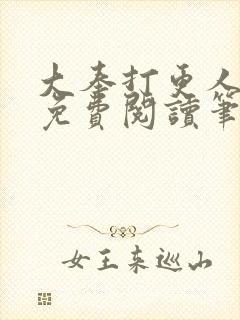 大奉打更人
免費閱讀筆
女王來巡山